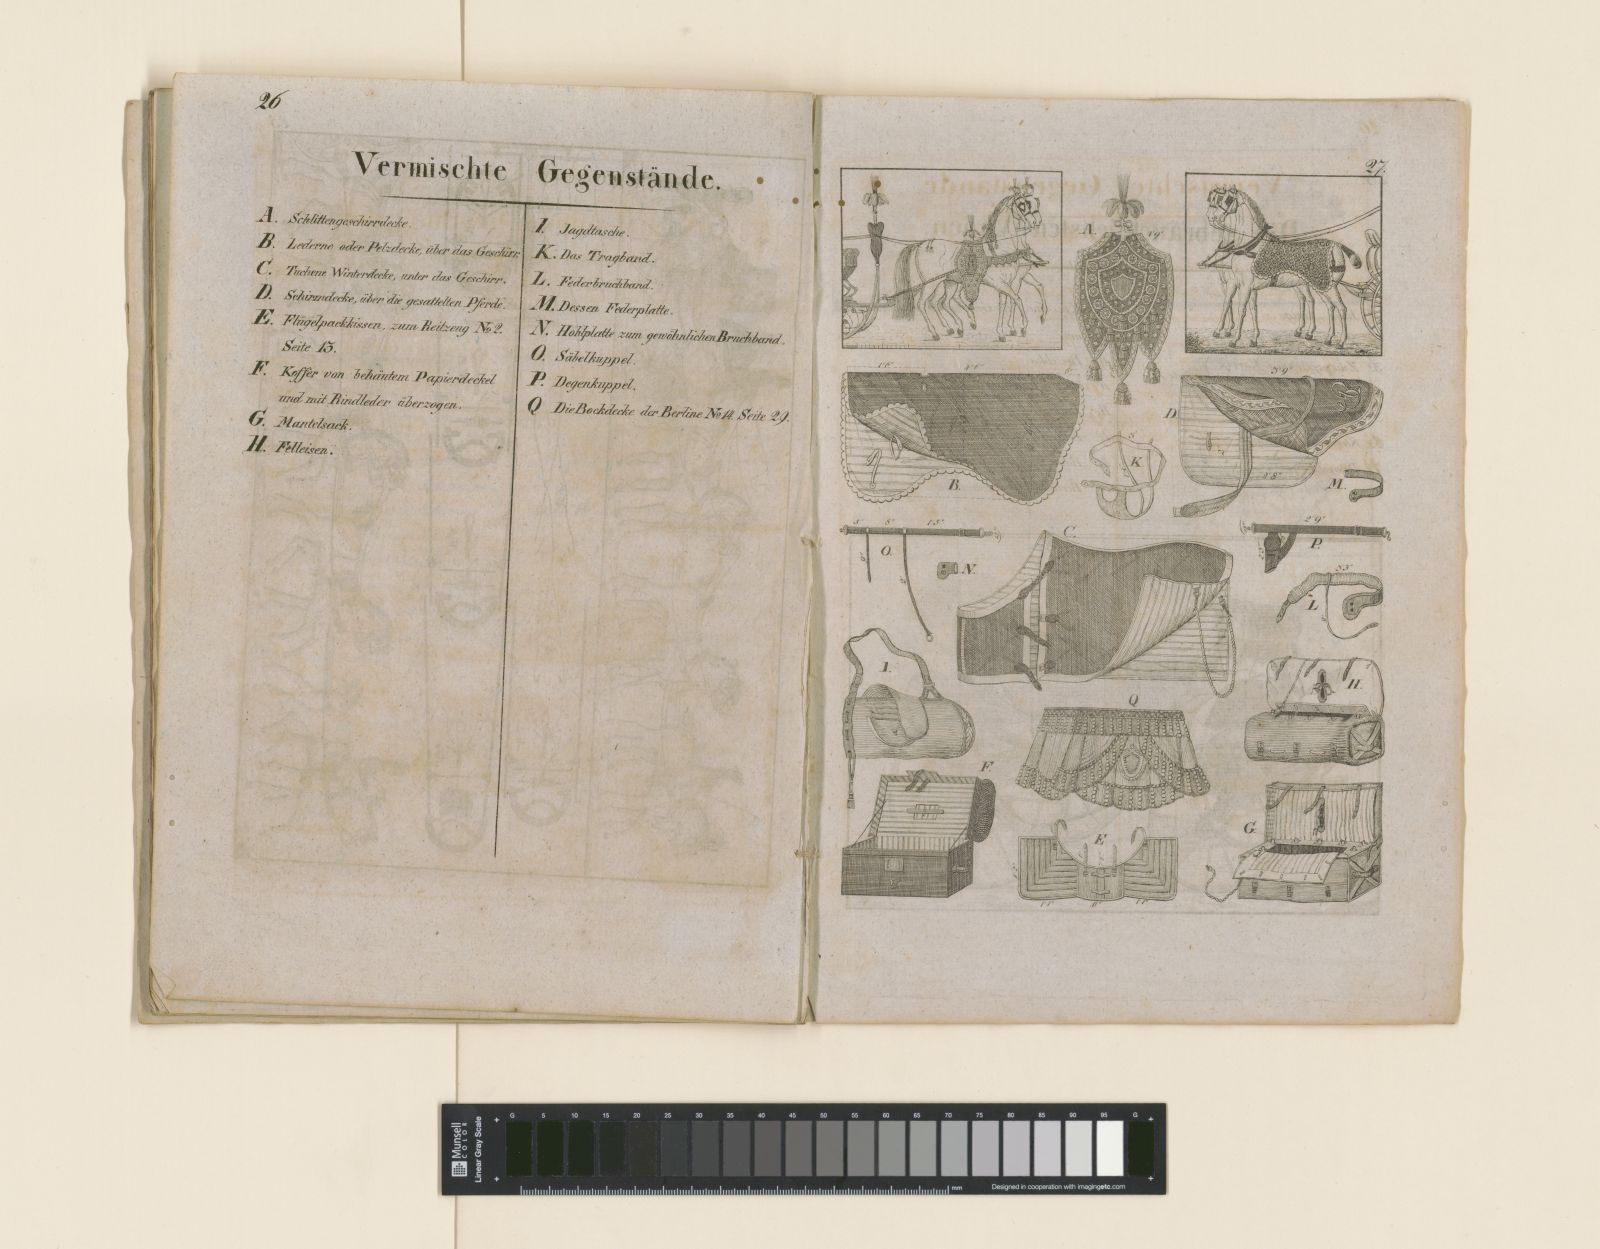 26
Vermischte Gegenstände.
A. Schlittengeschirrdecke.
B. Lederne oder Pelzdecke, über das Geschirr.
C. Tuchene Winterdecke, unter das Geschirr.
D. Schirmdecke, über die gesattelten Pferde.
E. Flügelpackkissen, zum Reitzeug No 2.
Seite 13.
F. Koffer von behäutem Papierdeckel
und mit Rindleder überzogen.
G. Mantelsack.
H. Felleisen.
I. Jagdtasche.
K. Das Tragband.
L. Federbruchband.
M. Dessen Federplatte.
N. Hohlplatte zum gewöhnlichen Bruchband.
O. Säbelkuppel.
P. Degenkuppel.
Q Die Bockdecke der Berline No 14. Seite 29.
27.
A.
B.
D.
K.
M.
O.
N.
C.
P.
L
I.
H.
Q
F
E
G.
Munsell
COLOR
Linear Gray Scale
G 5 10 15 20 25 30 35 40 45 50 55 60 65 70 75 80 85 90 95 G
mm
Designed in cooperation with imagingetc.com